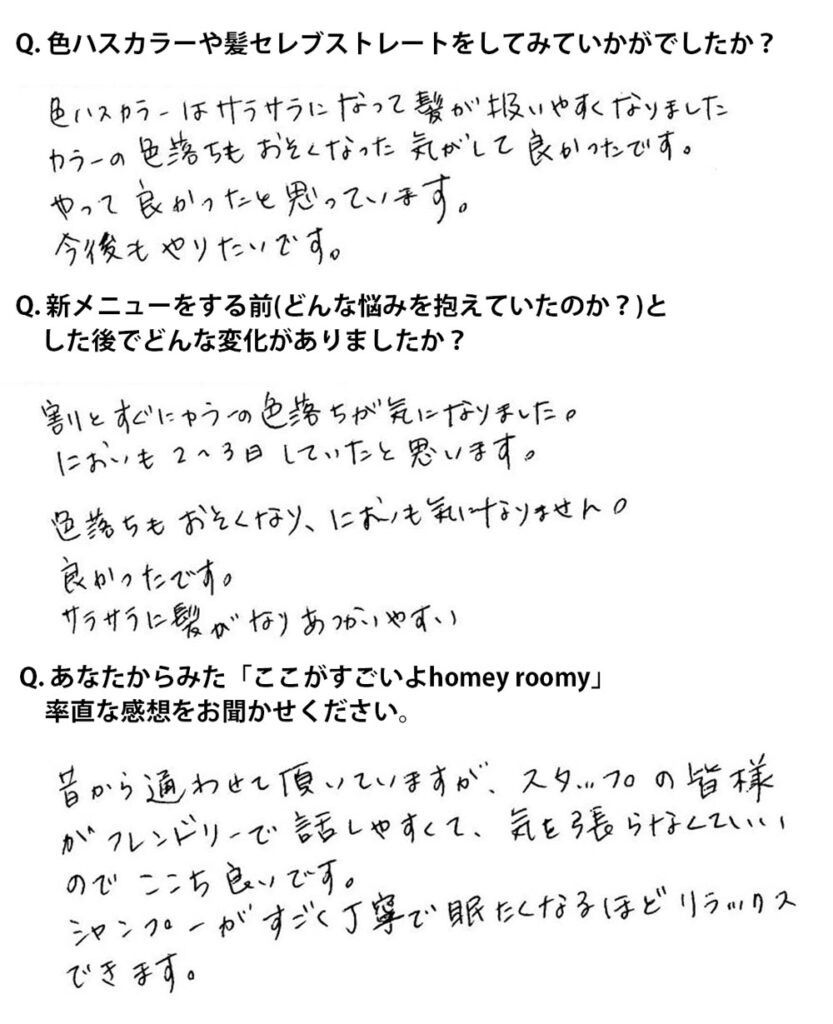 Q. 色ハスカラーや髪セレブストレートをしてみていかがでしたか？
色ハスカラーはサラサラになって髪が扱いやすくなりました
カラーの色落ちもおそくなった気がして良かったです。
やって良かったと思っています。
今後もやりたいです。
Q. 新メニューをする前(どんな悩みを抱えていたのか？)と
した後でどんな変化がありましたか？
割とすぐにカラーの色落ちが気になりました。
においも2〜3日していたと思います。
色落ちもおそくなり、においも気になりません。
良かったです。
サラサラに髪がなりあつかいやすい
Q. あなたからみた「ここがすごいよhomey roomy」
率直な感想をお聞かせください。
昔から通わせて頂いていますが、スタッフの皆様
がフレンドリーで話しやすくて、気を張らなくていい
のでここち良いです。
シャンプーがすごく丁寧で眠たくなるほどリラックス
できます。